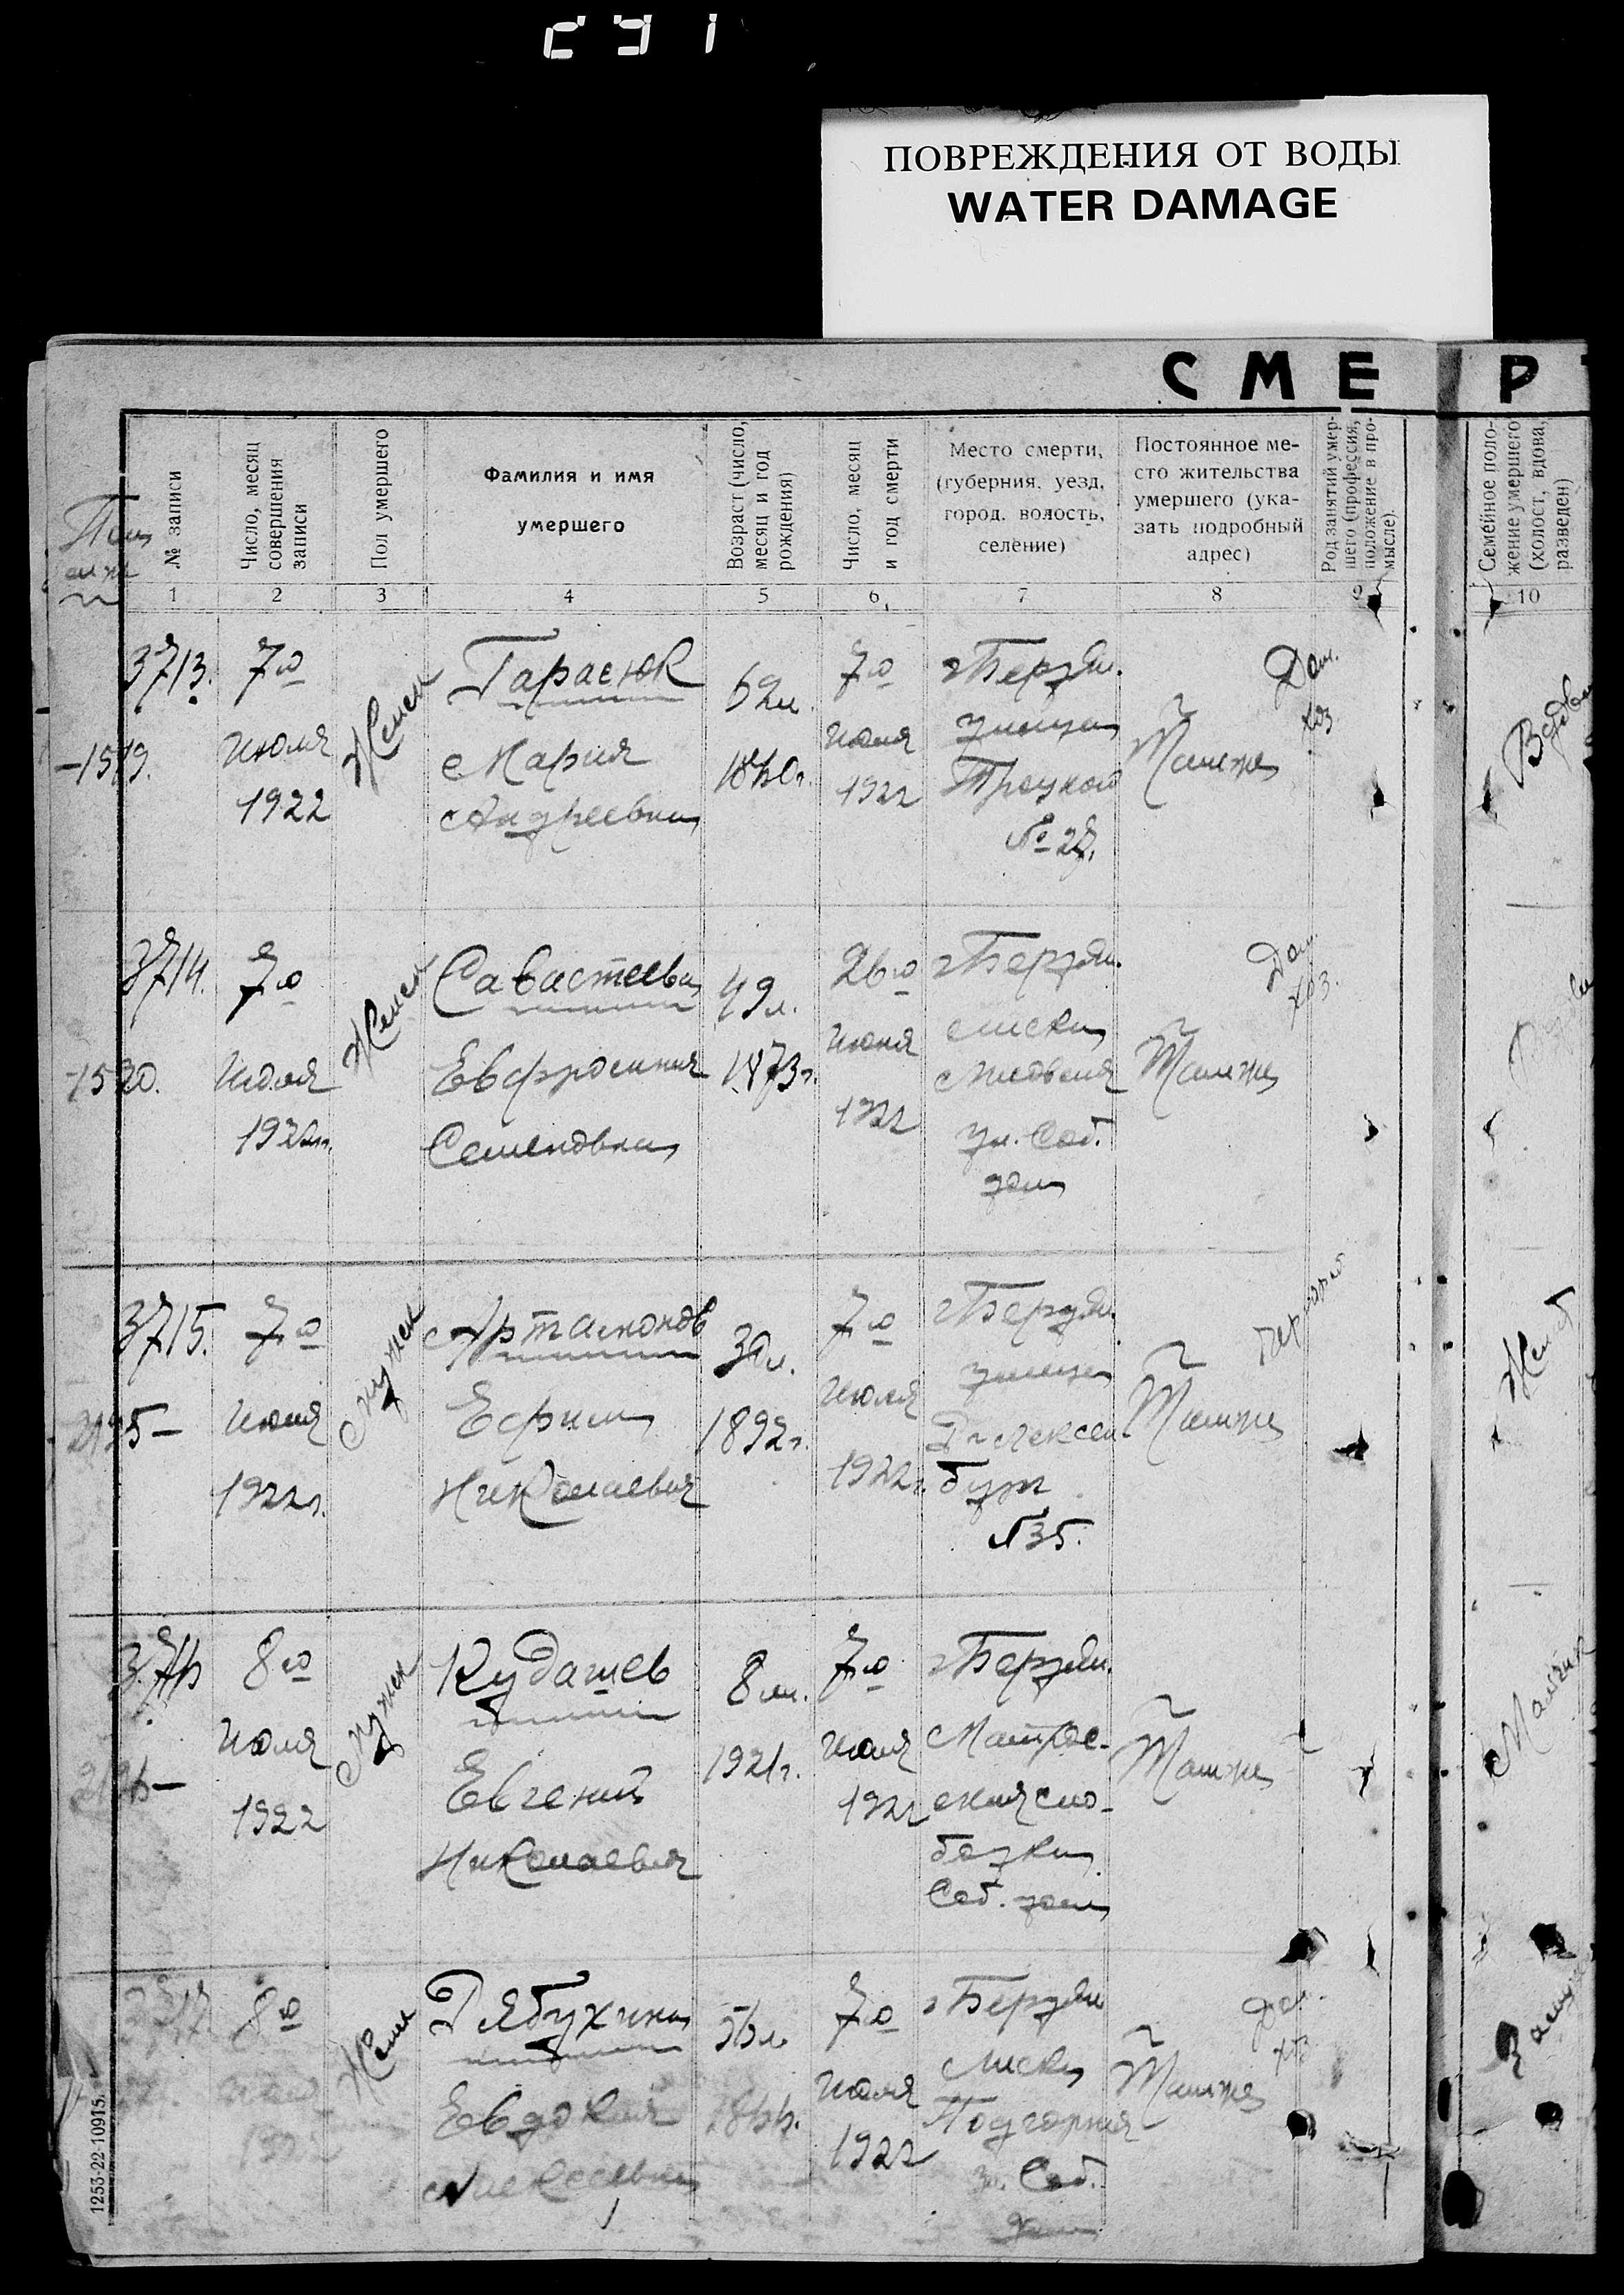 291
ПОВРЕЖДЕНИЯ ОТ ВОДЫ
WATER DAMAGE
СМЕР
№ записи
Число, месяц
совершения
записи
Пол умершего
Фамилия и имя
умершего
Возраст (число,
месяц и год
рождения)
Число, месяц
и год смерти
Место смерти,
(губерния, уезд,
город, волость,
селение)
Постоянное ме-
сто жительства
умершего (ука-
зать подробный
адрес)
Род занятий умер-
шего (профессия,
положение в про-
мысле).
Семейное поло-
жение умершего
(холост, вдова,
разведен)
1 2 3 4 5 6 7 8 9 10
3713.
-1519.
7го
июля
1922
Женск
Тарасюк
Мария
Андреевна
62л.
1860г.
7го
июля
1922
г Бердян.
улица
Троцкого
№ 28.
Тамже
Дом.
хоз
3714.
-1520.
7го
Июля
1922г.
Женск
Савастеева
Евфросиния
Семеновна
49л.
1873г.
26го
июня
1922
г Бердян.
Лиски
ул. Соб.
дом
Тамже
Дом.
хоз.
3715.
2195-
7го
июля
1922г.
Мужск
Артамонов
Ефим
Николаевич
30л.
1892г.
7го
июля
1922г.
г Бердян.
улица
Р Люксем-
бург
№35.
Тамже
Женат
3716
2196-
8го
июля
1922
Мужск
Кудашев
Евгений
Николаевич
8м.
1921г.
7го
июля
1922
г Бердян.
Матрос-
ская сло-
бодка
Соб. дом
Тамже
Мальчик
3717.
8го
1922
Женск
Рябухина
Евдокия
Алексеевна
56л
1866.
7го
июля
1922
г Бердян
Лиски
Подгорная
ул. Соб.
дом
Тамже
Дом.
хоз
1253-22-10915.